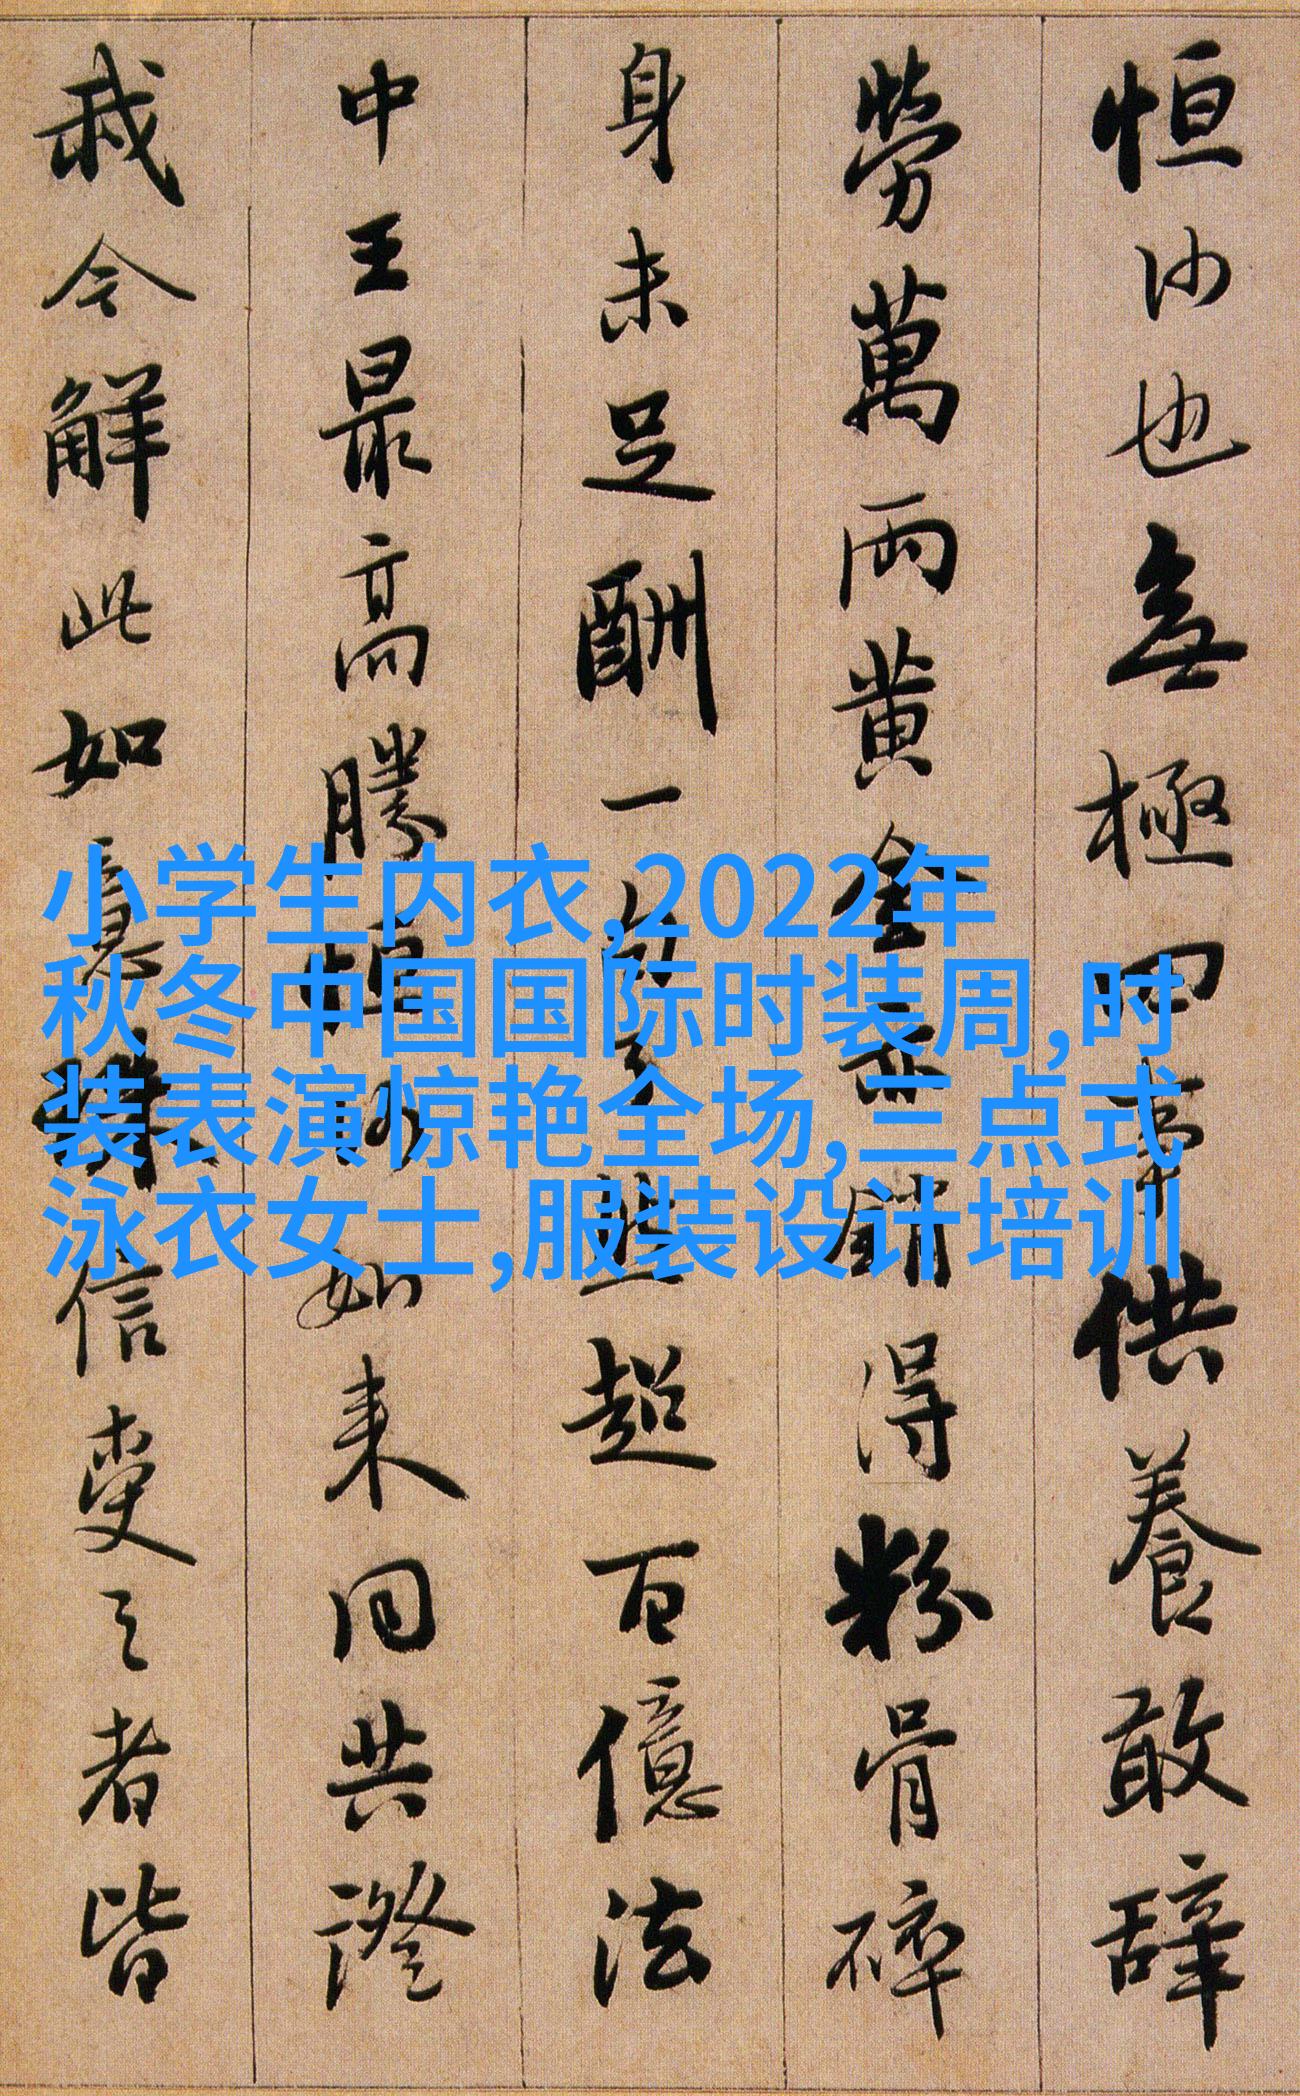 恒沙也無極四事供養敢辭
勞萬兩黄金亦銷得粉骨碎
身未足酬一句了然超百億法
中王最高勝恒沙如来同共證
我今解此如意珠信受之者皆
小学生内衣,2022年
秋冬中国国际时装周,时
装表演惊艳全场,三点式
泳衣女士,服装设计培训